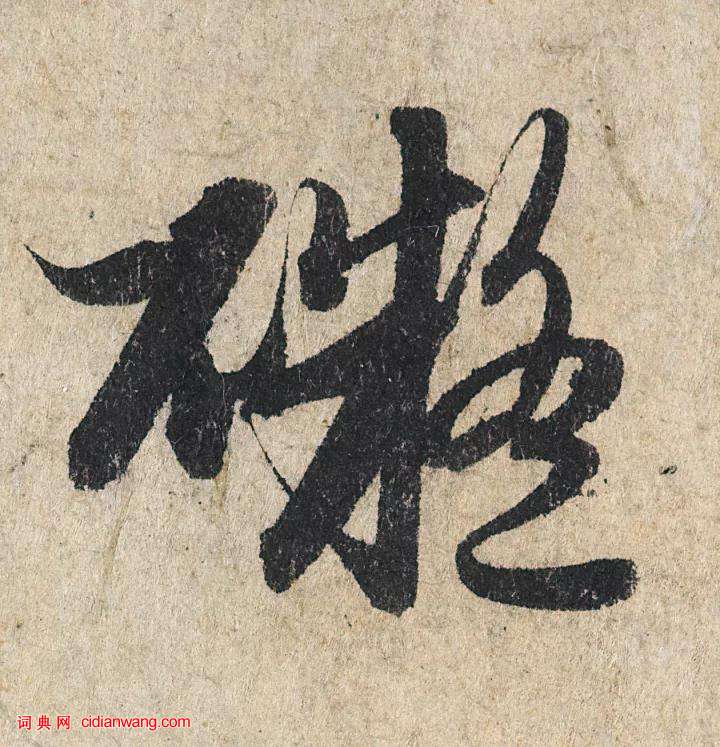 礙
词典网 cidianwang.com